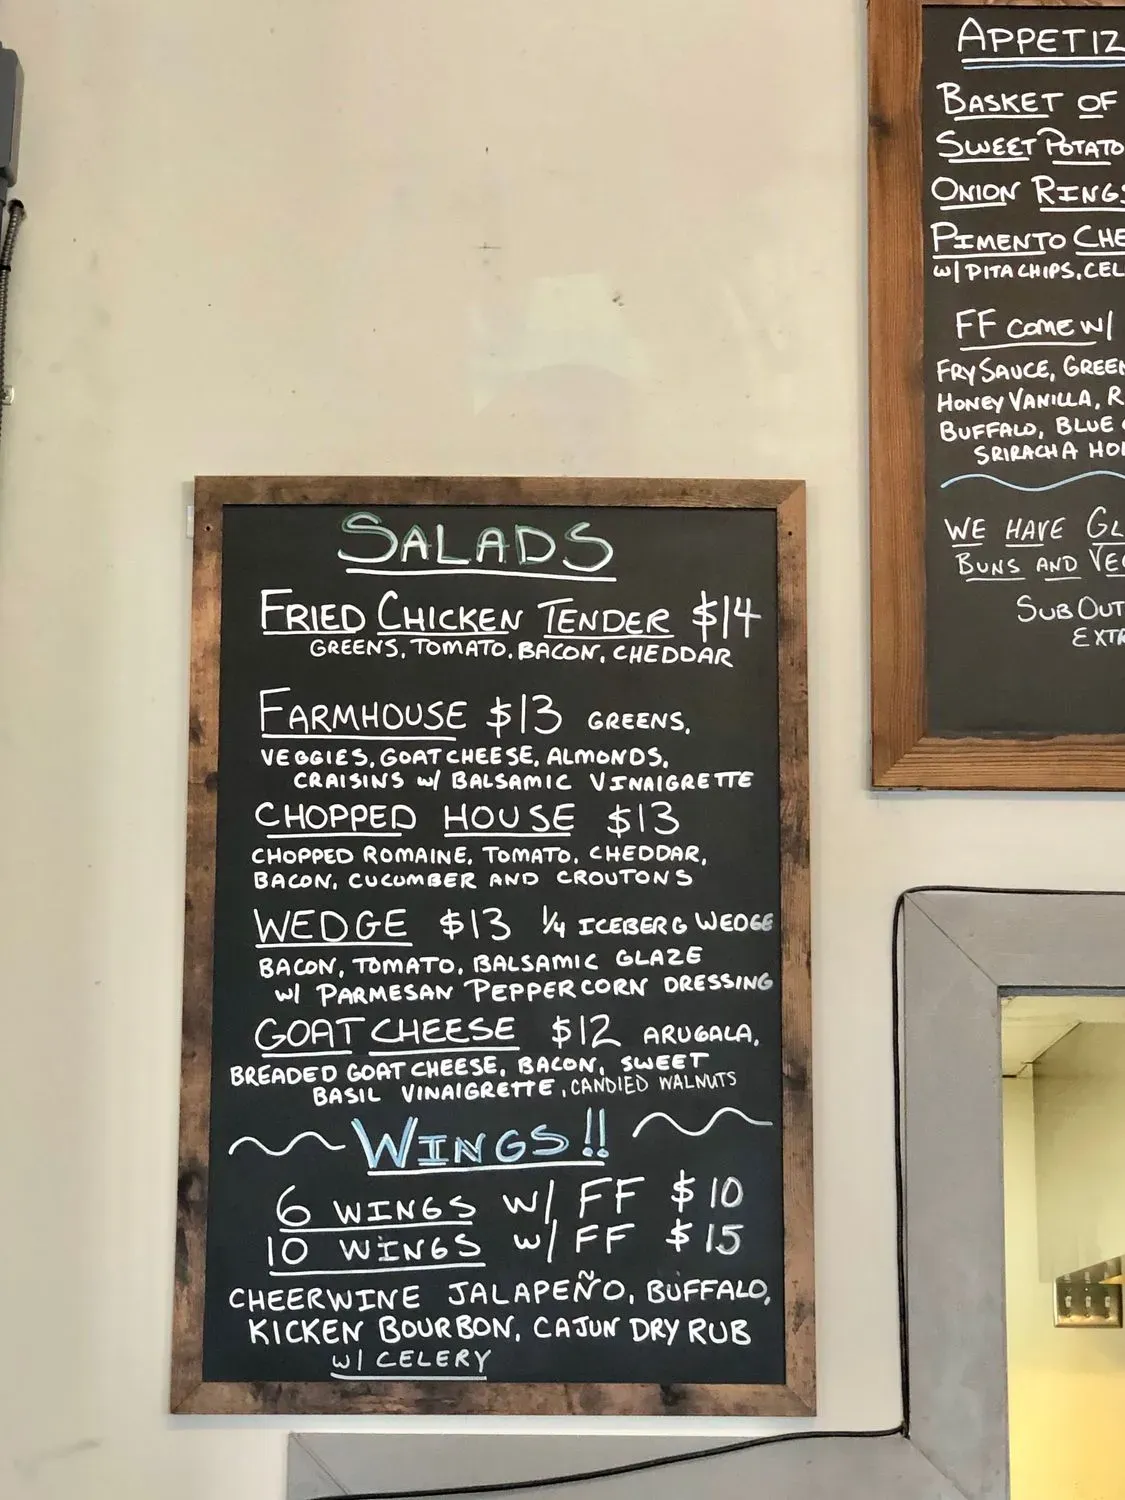 SALADS
FRIED CHICKEN TENDER $14
GREENS, TOMATO, BACON, CHEDDAR
FARMHOUSE $13 GREENS,
VEGGIES, GOAT CHEESE, ALMONDS,
CRAISINS w/ BALSAMIC VINAIGRETTE
CHOPPED HOUSE $13
CHOPPED ROMAINE, TOMATO, CHEDDAR,
BACON, CUCUMBER AND CROUTONS
WEDGE $13 1/4 ICEBERG WEDGE
BACON, TOMATO, BALSAMIC GLAZE
w/ PARMESAN PEPPERCORN DRESSING
GOAT CHEESE $12 ARUGALA,
BREADED GOAT CHEESE, BACON, SWEET
BASIL VINAIGRETTE, CANDIED WALNUTS
WINGS!!
6 WINGS w/ FF $10
10 WINGS w/ FF $15
CHEERWINE JALAPEÑO, BUFFALO,
KICKEN BOURBON, CAJUN DRY RUB
w/ CELERY
APPETIZ
BASKET OF
SWEET POTATO
ONION RINGS
PIMENTO CHE
w/ PITA CHIPS, CEL
FF COME w/
FRY SAUCE, GREEN
HONEY VANILLA, R
BUFFALO, BLUE
SRIRACHA HO
WE HAVE GL
BUNS AND VEG
SUB OUT
EXTR